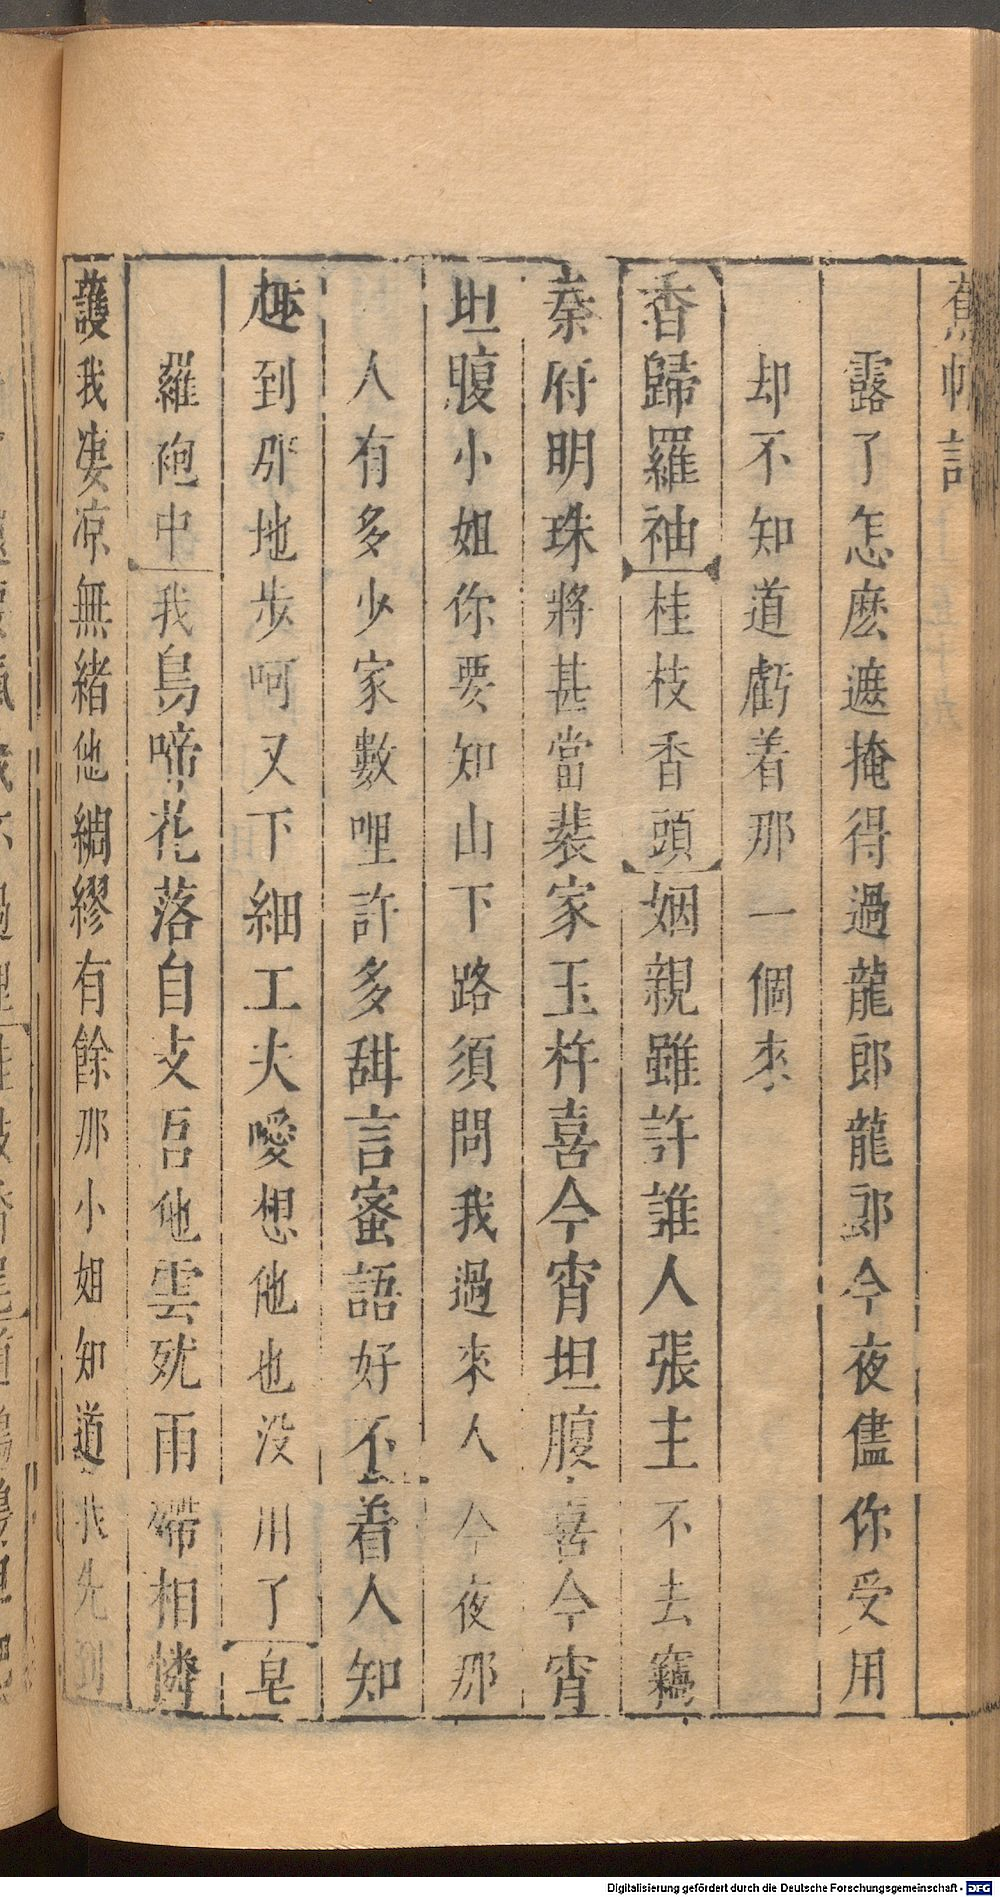 蕉帕記
露了怎麽遮掩得過龍郎龍郎今夜儘你受用
却不知道虧着那一個來
香歸羅袖桂枝香頭姻親雖許誰人張主不去竊
秦府明珠將甚當裴家玉杵喜今宵坦腹喜今宵
坦腹小姐你要知山下路須問我過來人今夜那
人有多少家數哩許多甜言蜜語好不着人知
趣到那地步呵又下細工夫噯想他也没用了皂
羅袍中我鳥啼花落自支吾他雲㞃雨殢相憐
護我凄凉無緒他綢繆有餘那小姐知道我先到
Digitalisierung gefördert durch die Deutsche Forschungsgemeinschaft - DFG